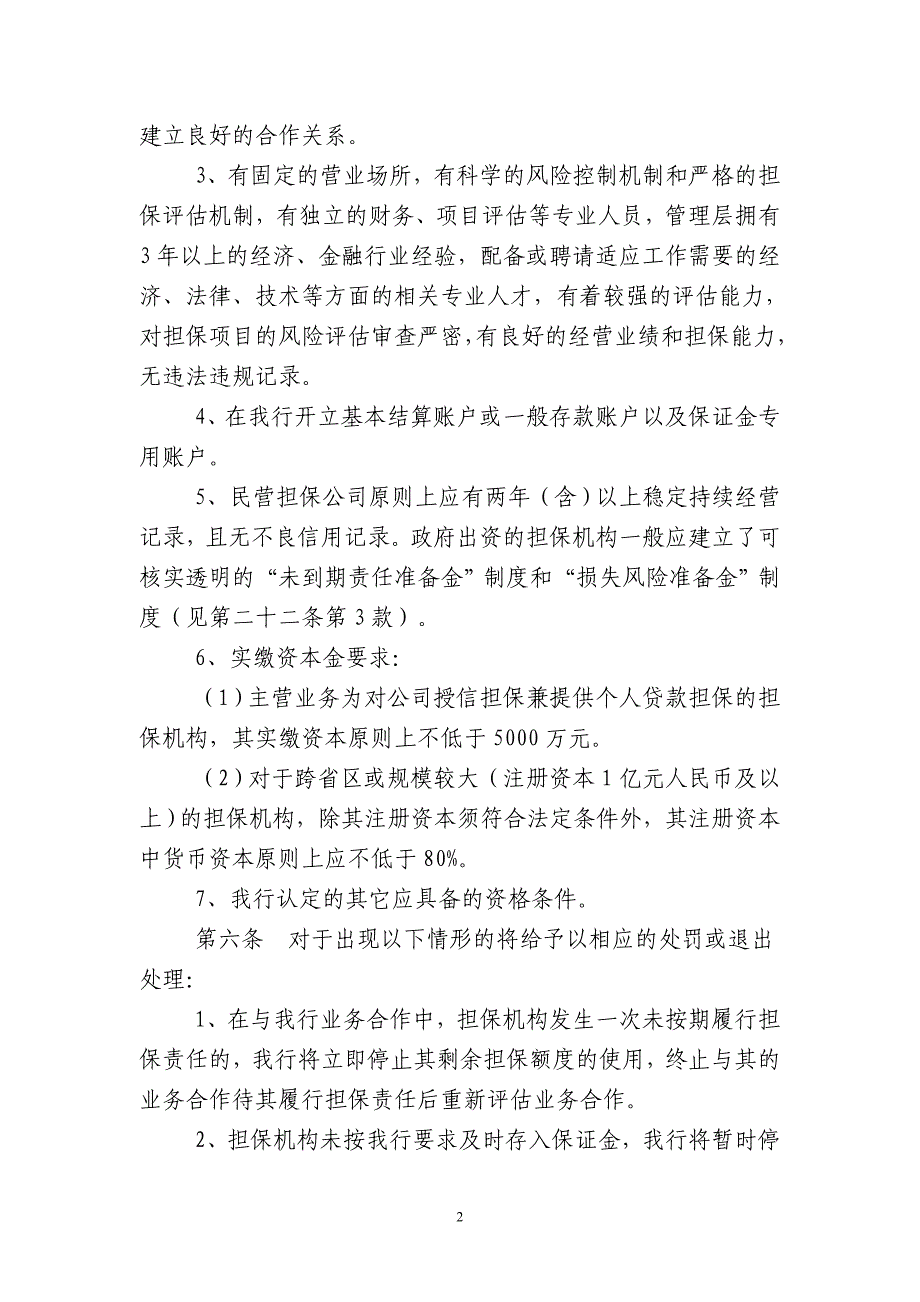 建立良好的合作关系。
3、有固定的营业场所，有科学的风险控制机制和严格的担
保评估机制，有独立的财务、项目评估等专业人员，管理层拥有
3 年以上的经济、金融行业经验，配备或聘请适应工作需要的经
济、法律、技术等方面的相关专业人才，有着较强的评估能力，
对担保项目的风险评估审查严密，有良好的经营业绩和担保能力，
无违法违规记录。
4、在我行开立基本结算账户或一般存款账户以及保证金专
用账户。
5、民营担保公司原则上应有两年（含）以上稳定持续经营
记录，且无不良信用记录。政府出资的担保机构一般应建立了可
核实透明的“未到期责任准备金”制度和“损失风险准备金”制
度（见第二十二条第 3 款）。
6、实缴资本金要求：
（1）主营业务为对公司授信担保兼提供个人贷款担保的担
保机构，其实缴资本原则上不低于 5000 万元。
（2）对于跨省区或规模较大（注册资本 1 亿元人民币及以
上）的担保机构，除其注册资本须符合法定条件外，其注册资本
中货币资本原则上应不低于 80%。
7、我行认定的其它应具备的资格条件。
第六条　对于出现以下情形的将给予以相应的处罚或退出
处理：
1、在与我行业务合作中，担保机构发生一次未按期履行担
保责任的，我行将立即停止其剩余担保额度的使用，终止与其的
业务合作待其履行担保责任后重新评估业务合作。
2、担保机构未按我行要求及时存入保证金，我行将暂时停
2